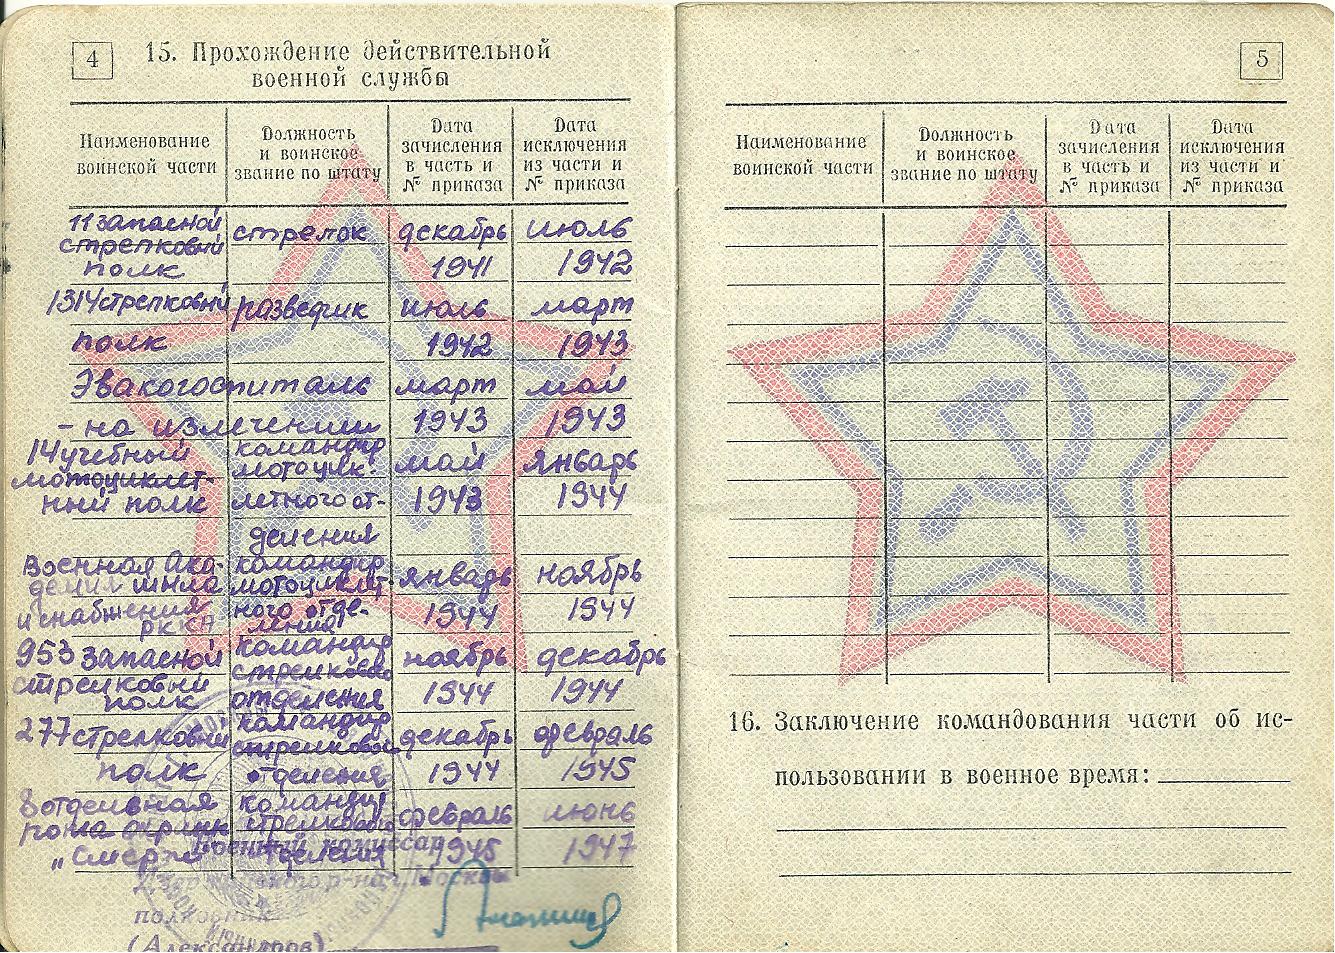 4
15. Прохождение действительной
военной службы
Наименование воинской части
Должность и воинское звание по штату
Дата зачисления в часть и № приказа
Дата исключения из части и № приказа
11 запасной стрелковый полк стрелок декабрь 1941 июль 1942
1314 стрелковый полк разведчик июль 1942 март 1943
Эвакогоспиталь март май
- на излечении 1943 1943
14 учебный мотоциклет-
ный полк
командир
мотоцик-
летного от-
деления
май 1943
январь 1944
Военная Ака-
демия
и снабжения
РККА
командир
мотоциклет-
ного отде-
ления
январь 1944
ноябрь 1944
953 запасной
стрелковый
полк
командир
стрелкового
отделения
ноябрь 1944
декабрь 1944
277 стрелковый
полк
командир
стрелкового
отделения
декабрь 1944
февраль 1945
8 отдельная
рота охраны
"Смерш"
командир
стрелкового
отделения
февраль 1945
июнь 1947
Военный комиссар
Дзержинского р-на г. Москвы
полковник
(Александров)
5
Наименование воинской части
Должность и воинское звание по штату
Дата зачисления в часть и № приказа
Дата исключения из части и № приказа
16. Заключение командования части об ис-
пользовании в военное время: